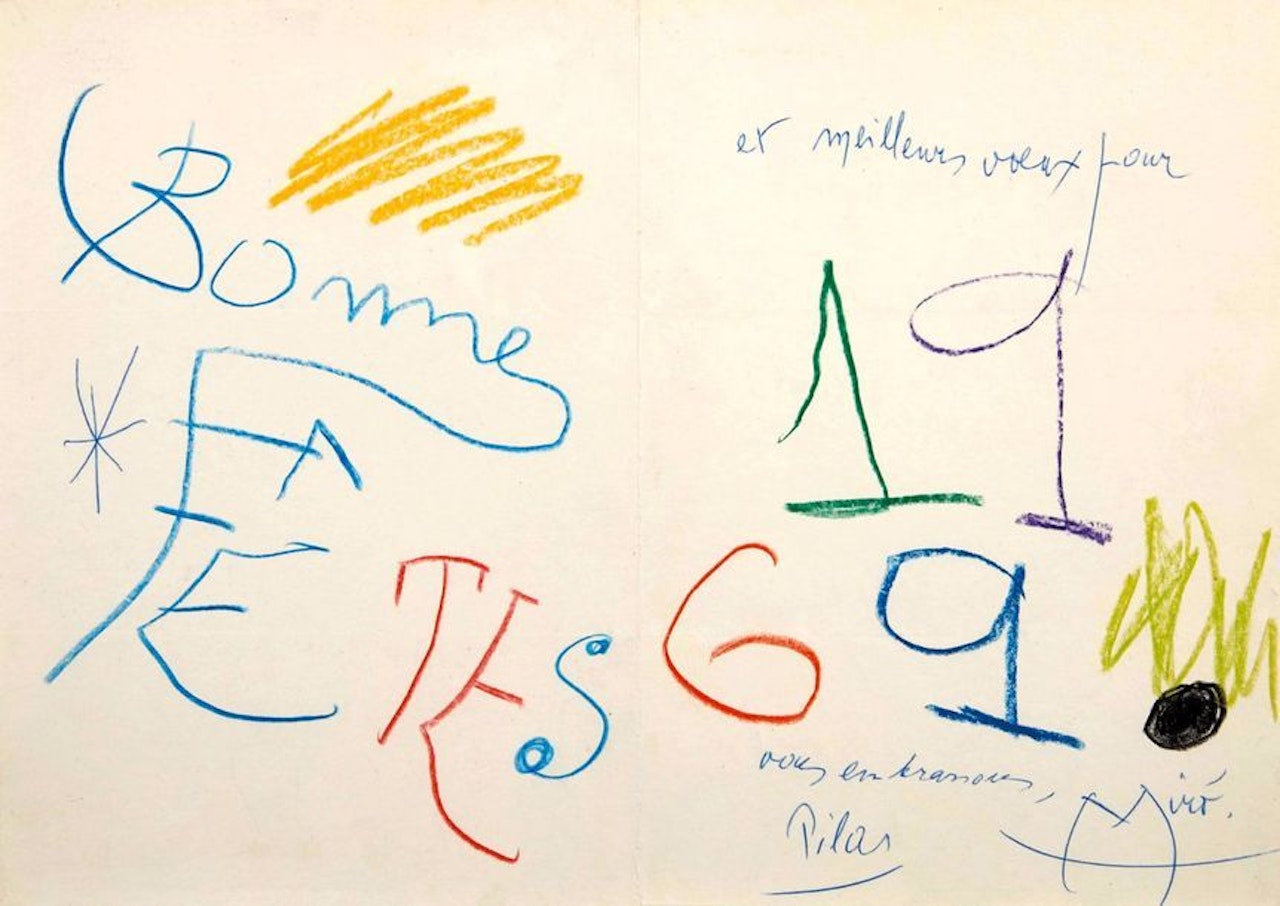 Bonne
FÊTES
et meilleurs voeux pour
19
69
vous embrassons,
Pilar
Miró.